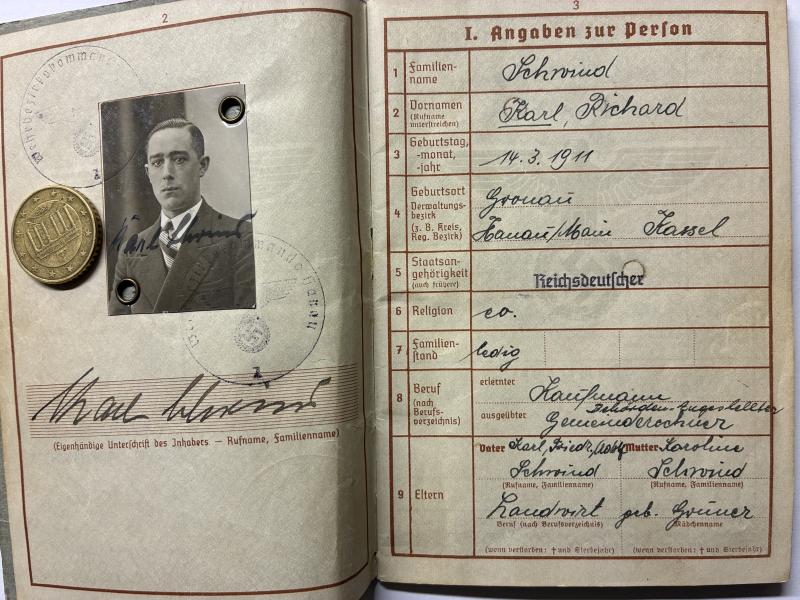 2
Wehrbezirkskommando
Karl Schwind
Wehrbezirkskommando Hanau
2
Karl Schwind
(Eigenhändige Unterschrift des Inhabers — Rufname, Familienname)
3
I. Angaben zur Person
1 Familienname Schwind
2 Vornamen (Rufname unterstreichen) Karl, Richard
3 Geburtstag, -monat, -jahr 14.3.1911
4 Geburtsort Gronau
Verwaltungsbezirk (z. B. Kreis, Reg. Bezirk) Hanau/Main Kassel
5 Staatsangehörigkeit (auch frühere) Reichsdeutscher
6 Religion ev.
7 Familienstand ledig
8 Beruf (nach Berufsverzeichnis) erlernter Kaufmann
Behörden-Angestellter
ausgeübter Gemeinderechner
9 Eltern Vater Karl, Friedr., Adolf Mutter Karoline
Schwind Schwind
(Rufname, Familienname) (Rufname, Familienname)
Landwirt geb. Grüner
Beruf (nach Berufsverzeichnis) Mädchenname
(wenn verstorben: † und Sterbejahr) (wenn verstorben: † und Sterbejahr)